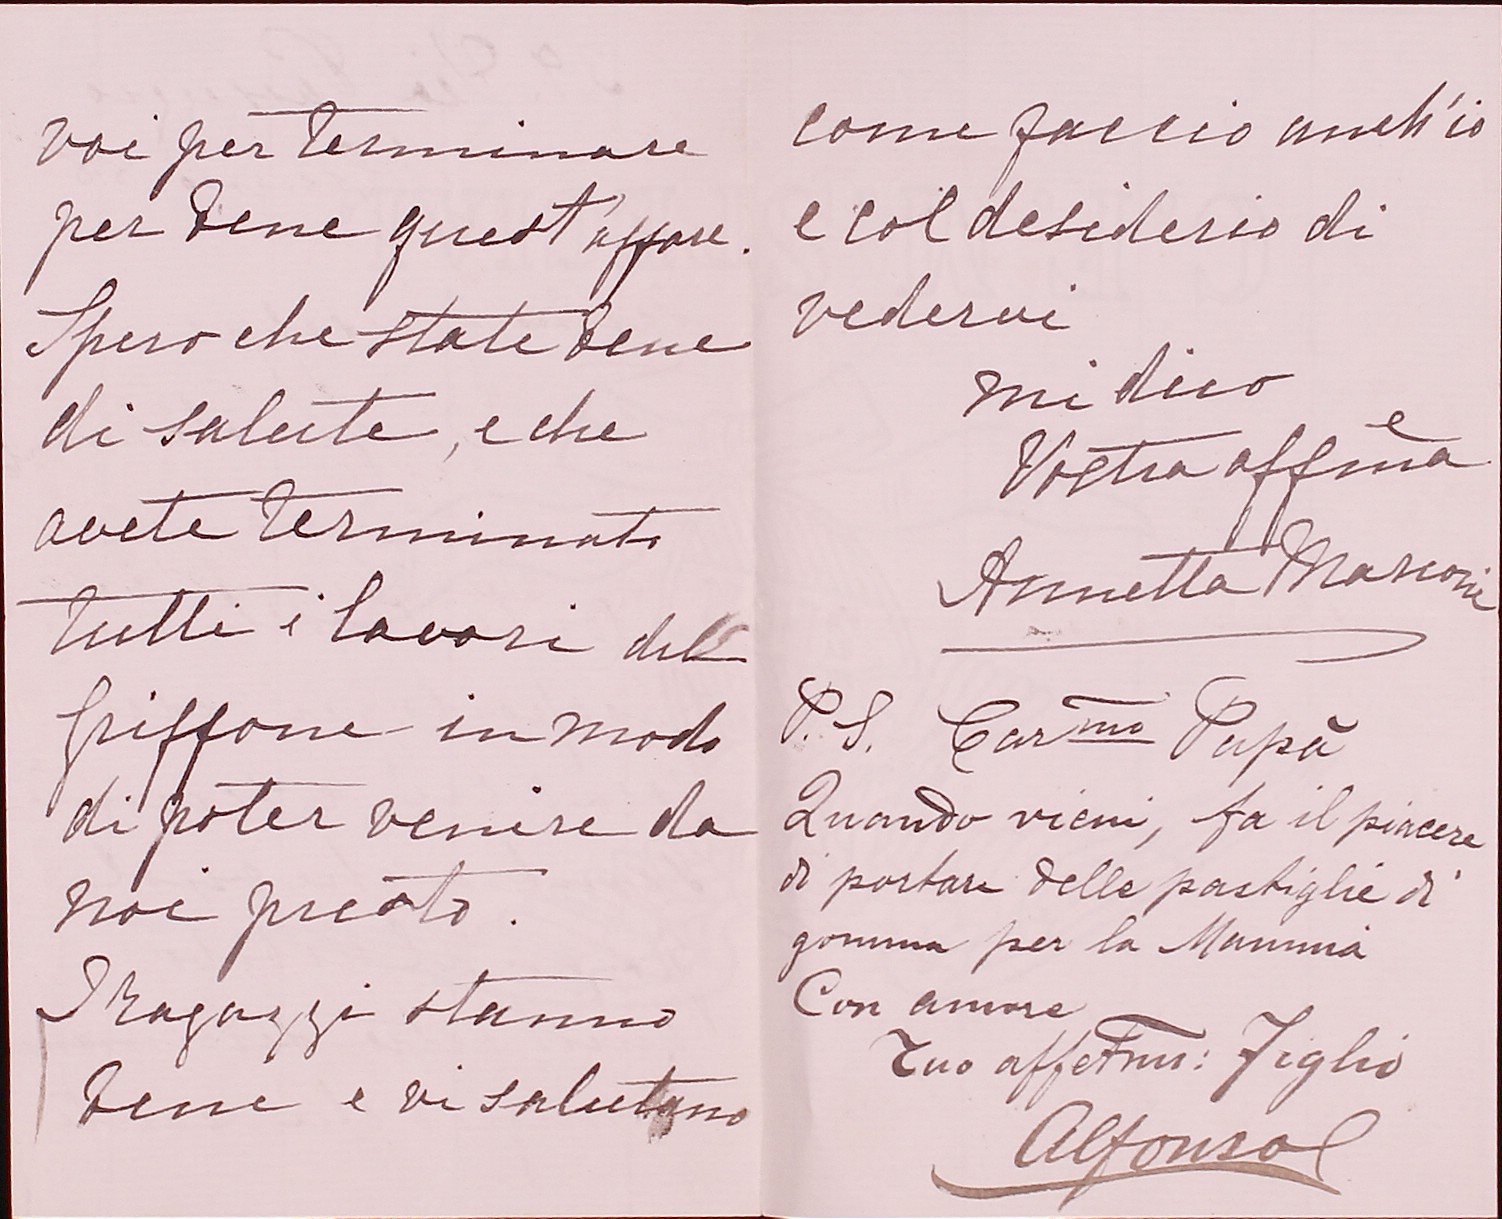 voi per terminare
per bene quest'affare.
Spero che state bene
di salute, e che
avete terminato
tutti i lavori del
Griffone in modo
di poter venire da
noi presto.
I Ragazzi stanno
bene e vi salutano
come faccio anch'io
e col desiderio di
vedervi
mi dico
Vostra affma
Annetta Marconi
P.S. Carmo Papà
Quando vieni, fa il piacere
di portare delle pastiglie di
gomma per la Mamma
Con amore
Tuo affetmo: Figlio
Alfonso